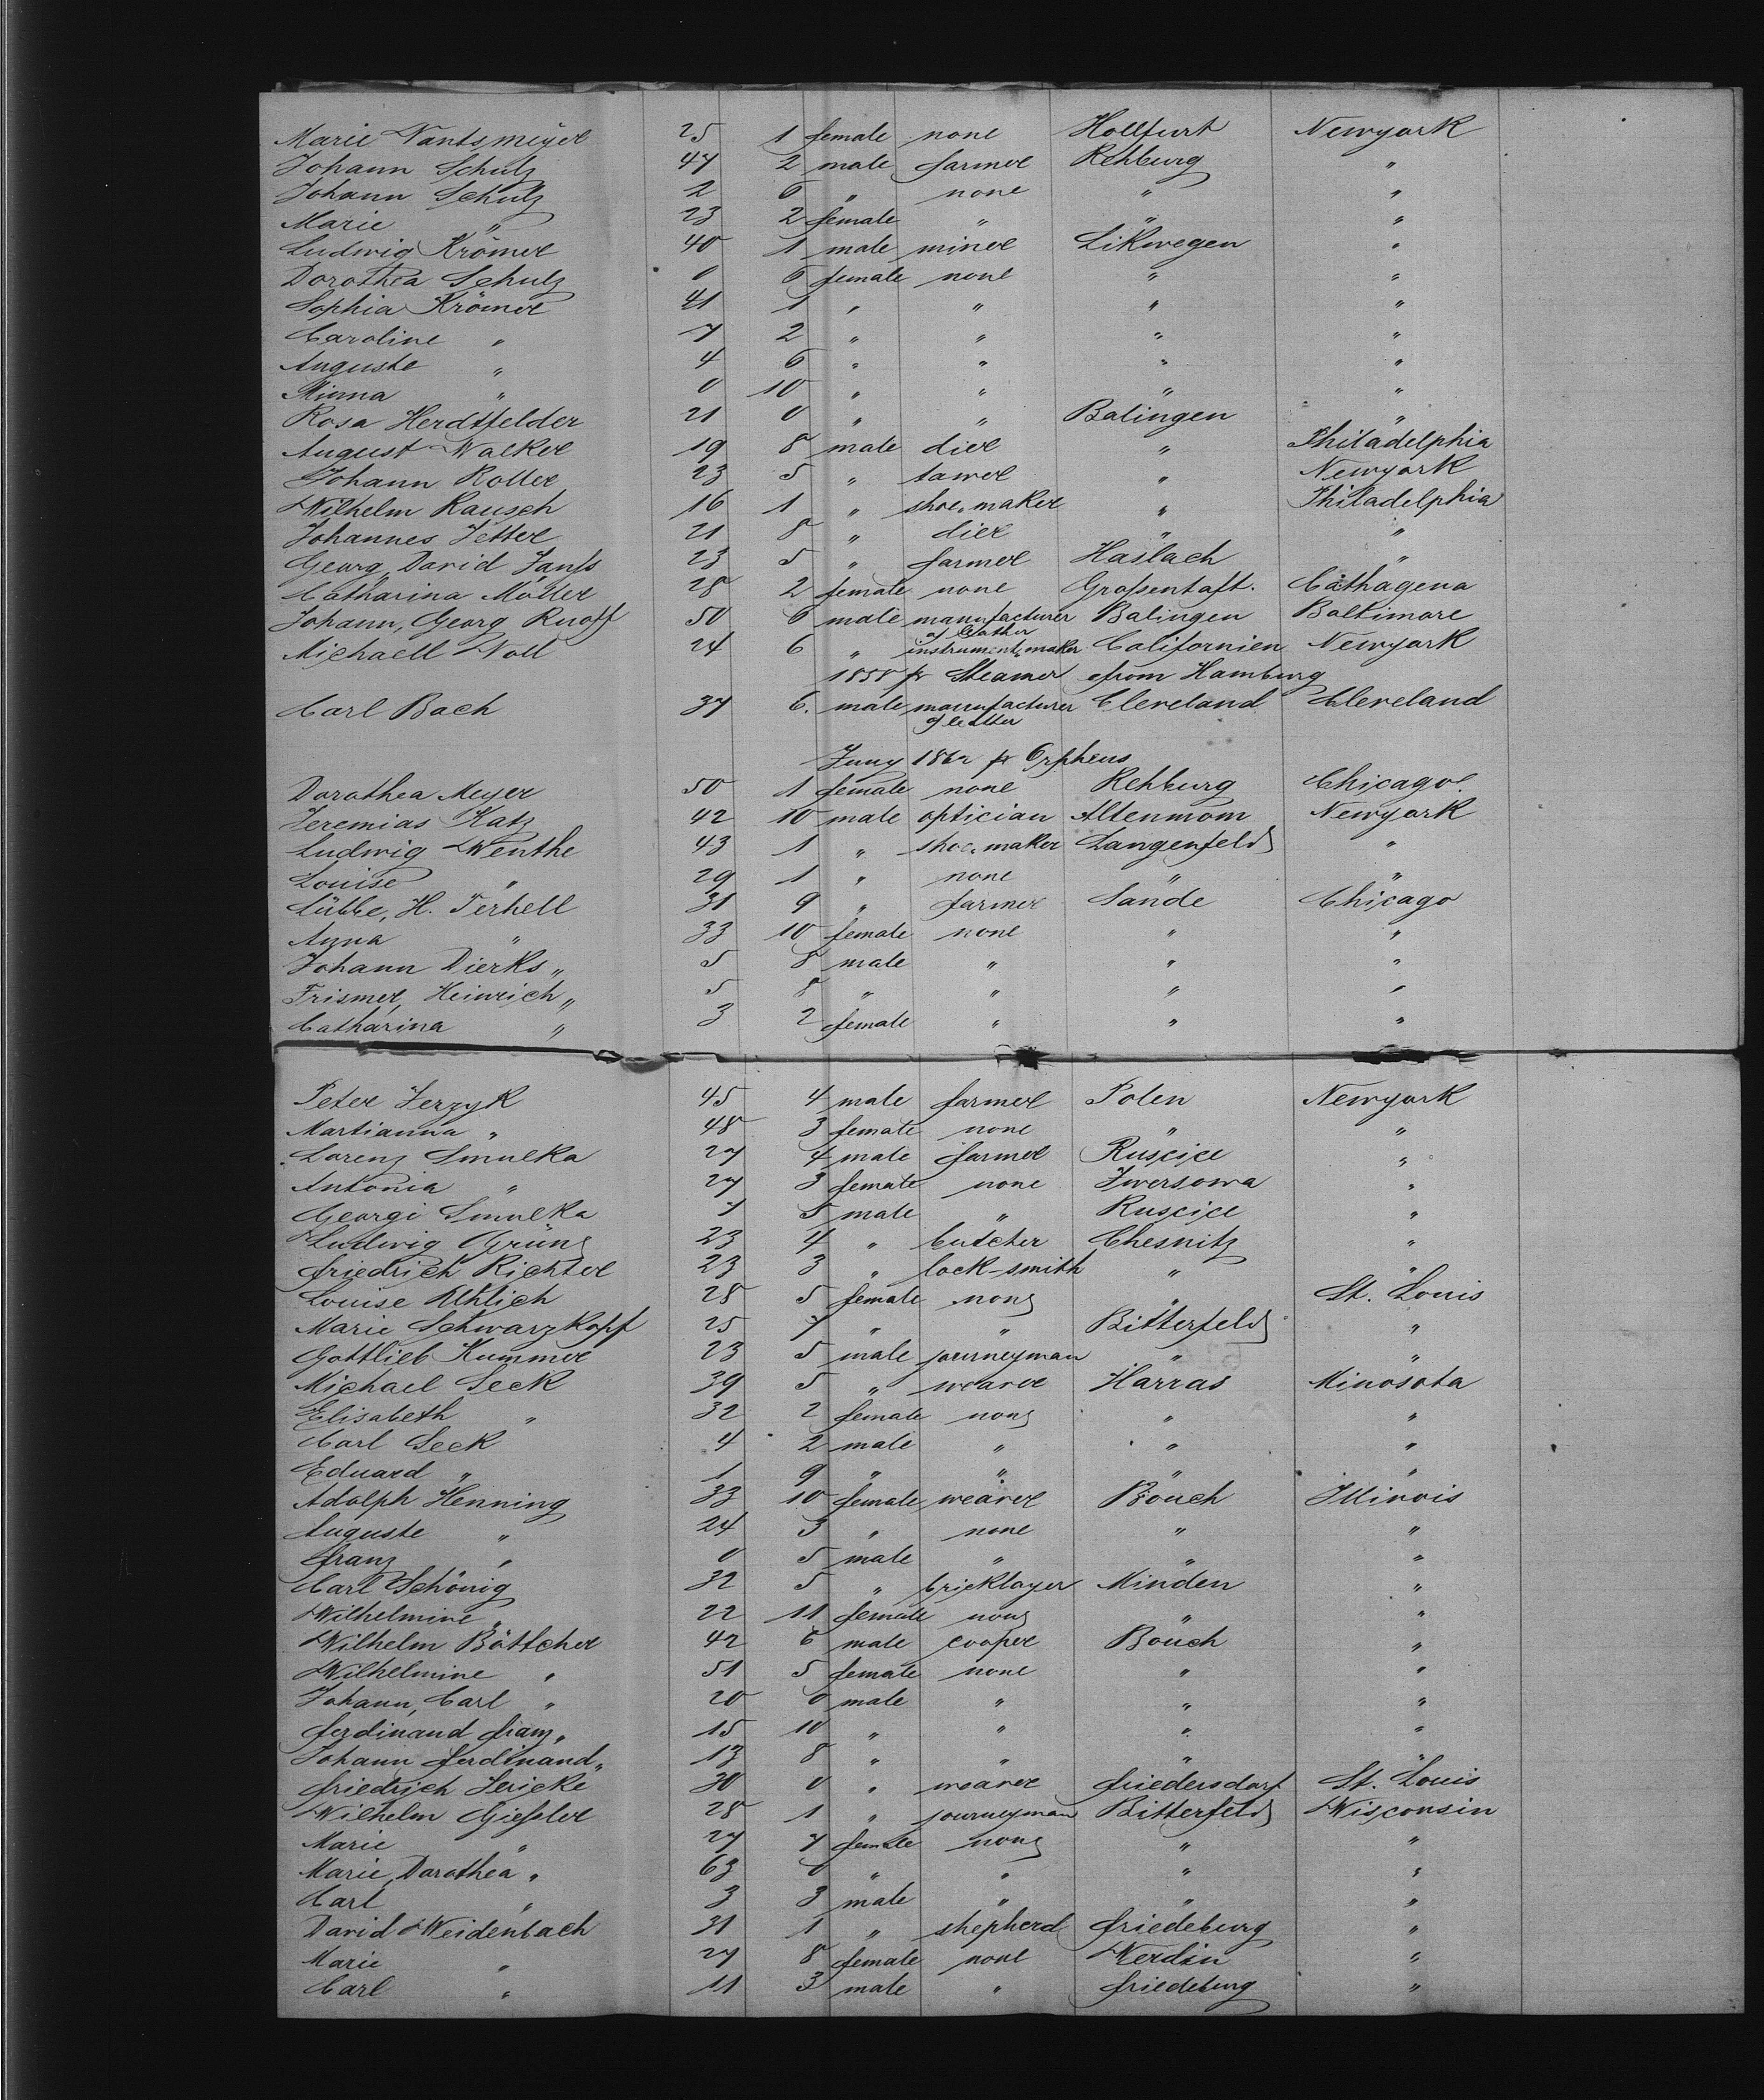 Marie Vantsmeijer 25 1 female none Hollfurt Newyork
Johann Schulz 47 2 male farmer Rehburg "
Johann Schulz 2 6 " none " "
Marie " 23 2 female " " "
Ludwig Krömer 40 1 male miner Likwegen "
Dorothea Schulz 0 6 female none " "
Sophia Krömer 41 1 " " " "
Caroline " 7 2 " " " "
Auguste " 4 6 " " " "
Minna " 0 10 " " " "
Rosa Herdtfelder 21 0 " " Balingen "
August Walker 19 8 male dier " Philadelphia
Johann Roller 23 5 " tawer " Newyork
Wilhelm Rausch 16 1 " shoe,maker " Philadelphia
Johannes Jetter 21 8 " dier " "
Georg, David Janss 23 5 " farmer Haslach "
Catharina Möller 28 2 female none Grossentaft. Cathagena
Johann, Georg Ruoff 50 6 male manufacturer of leather Balingen Baltimore
Michaell Noll 24 6 " instrument,maker Californien Newyork
1858 pr Steamer from Hamburg
Carl Bach 37 6. male manufacturer of leather Cleveland Cleveland
Juny 1862 pr Orpheus
Dorothea Meyer 50 1 female none Rehburg Chicago.
Jeremias Katz 42 10 male optician Altenmom Newyork
Ludwig Wenthe 43 1 " shoe,maker Langenfeld "
Louise " 29 1 " none " "
Lübbe, H. Terhell 31 9 " farmer Sande Chicago
Anna " 33 10 female none " "
Johann Dierks " 5 8 male " " "
Frismer, Heinrich " 5 8 " " " "
Catharina " 3 2 female " " "
Peter Jerzyk 45 4 male farmer Polen Newyork
Martianna " 48 3 female none " "
Lorenz Smulka 27 4 male farmer Ruscice "
Antonia " 27 3 female none Zwersowa "
Georgi Smulka 7 5 male " Ruscice "
Ludwig Grüng 23 4 " butcher Chesnitz "
Friedrich Richter 23 3 " lock-smith " "
Louise Uhlich 28 5 female none " St. Louis
Marie Schwarzkopf 25 7 " " Bitterfeld "
Gottlieb Kummer 23 5 male journeyman " "
Michael Seck 39 5 " weaver Harras Minosota
Elisabeth " 32 2 female none " "
Carl Seck 4 2 male " " "
Eduard " 1 9 " " " "
Adolph Henning 33 10 female weaver Bouch Illinois
Auguste " 24 3 " none " "
Franz " 0 5 male " " "
Carl Schönig 32 5 " bricklayer Minden "
Wilhelmine " 22 11 female none " "
Wilhelm Böttcher 42 6 male cooper Bouch "
Wilhelmine " 51 5 female none " "
Johann, Carl " 20 0 male " " "
Ferdinand Franz " 15 10 " " " "
Johann Ferdinand " 13 8 " " " "
Friedrich Jericke 30 0 " weaver Friedersdorf St. Louis
Wilhelm Giessler 28 1 " journeyman Bitterfeld Wisconsin
Marie " 27 7 female none " "
Marie, Dorothea " 63 0 " " " "
Carl " 3 3 male " " "
David Weidenbach 31 1 " shepherd Friedeburg "
Marie " 27 8 female none Werdin "
Carl " 11 3 male " Friedeburg "